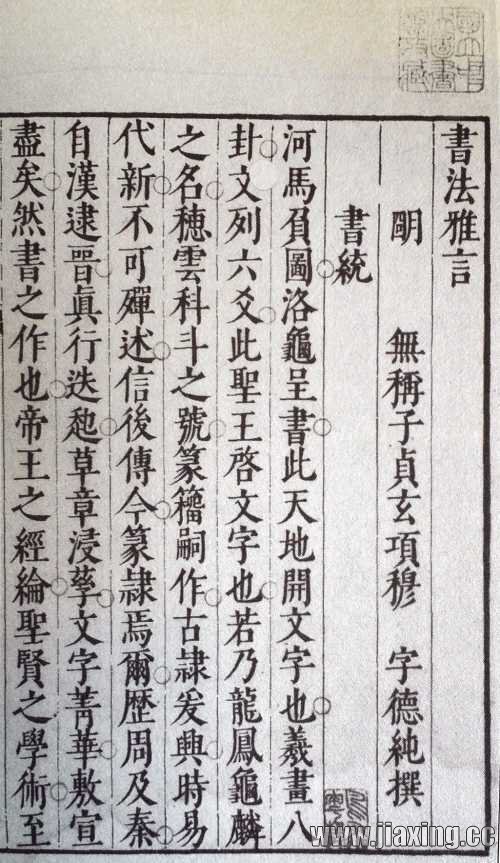 書法雅言
明 無稱子貞玄項穆 字德純撰
書統
河馬負圖洛龜呈書此天地開文字也羲畫八
卦文列六爻此聖王啓文字也若乃龍鳳龜麟
之名穗雲科斗之號篆籀嗣作古隷爰興時易
代新不可殫述信後傳今篆隷焉爾歴周及秦
自漢逮晉眞行迭起草章浸孳文字菁華敷宣
盡矣然書之作也帝王之經綸聖賢之學術至
www.jiaxing.cc